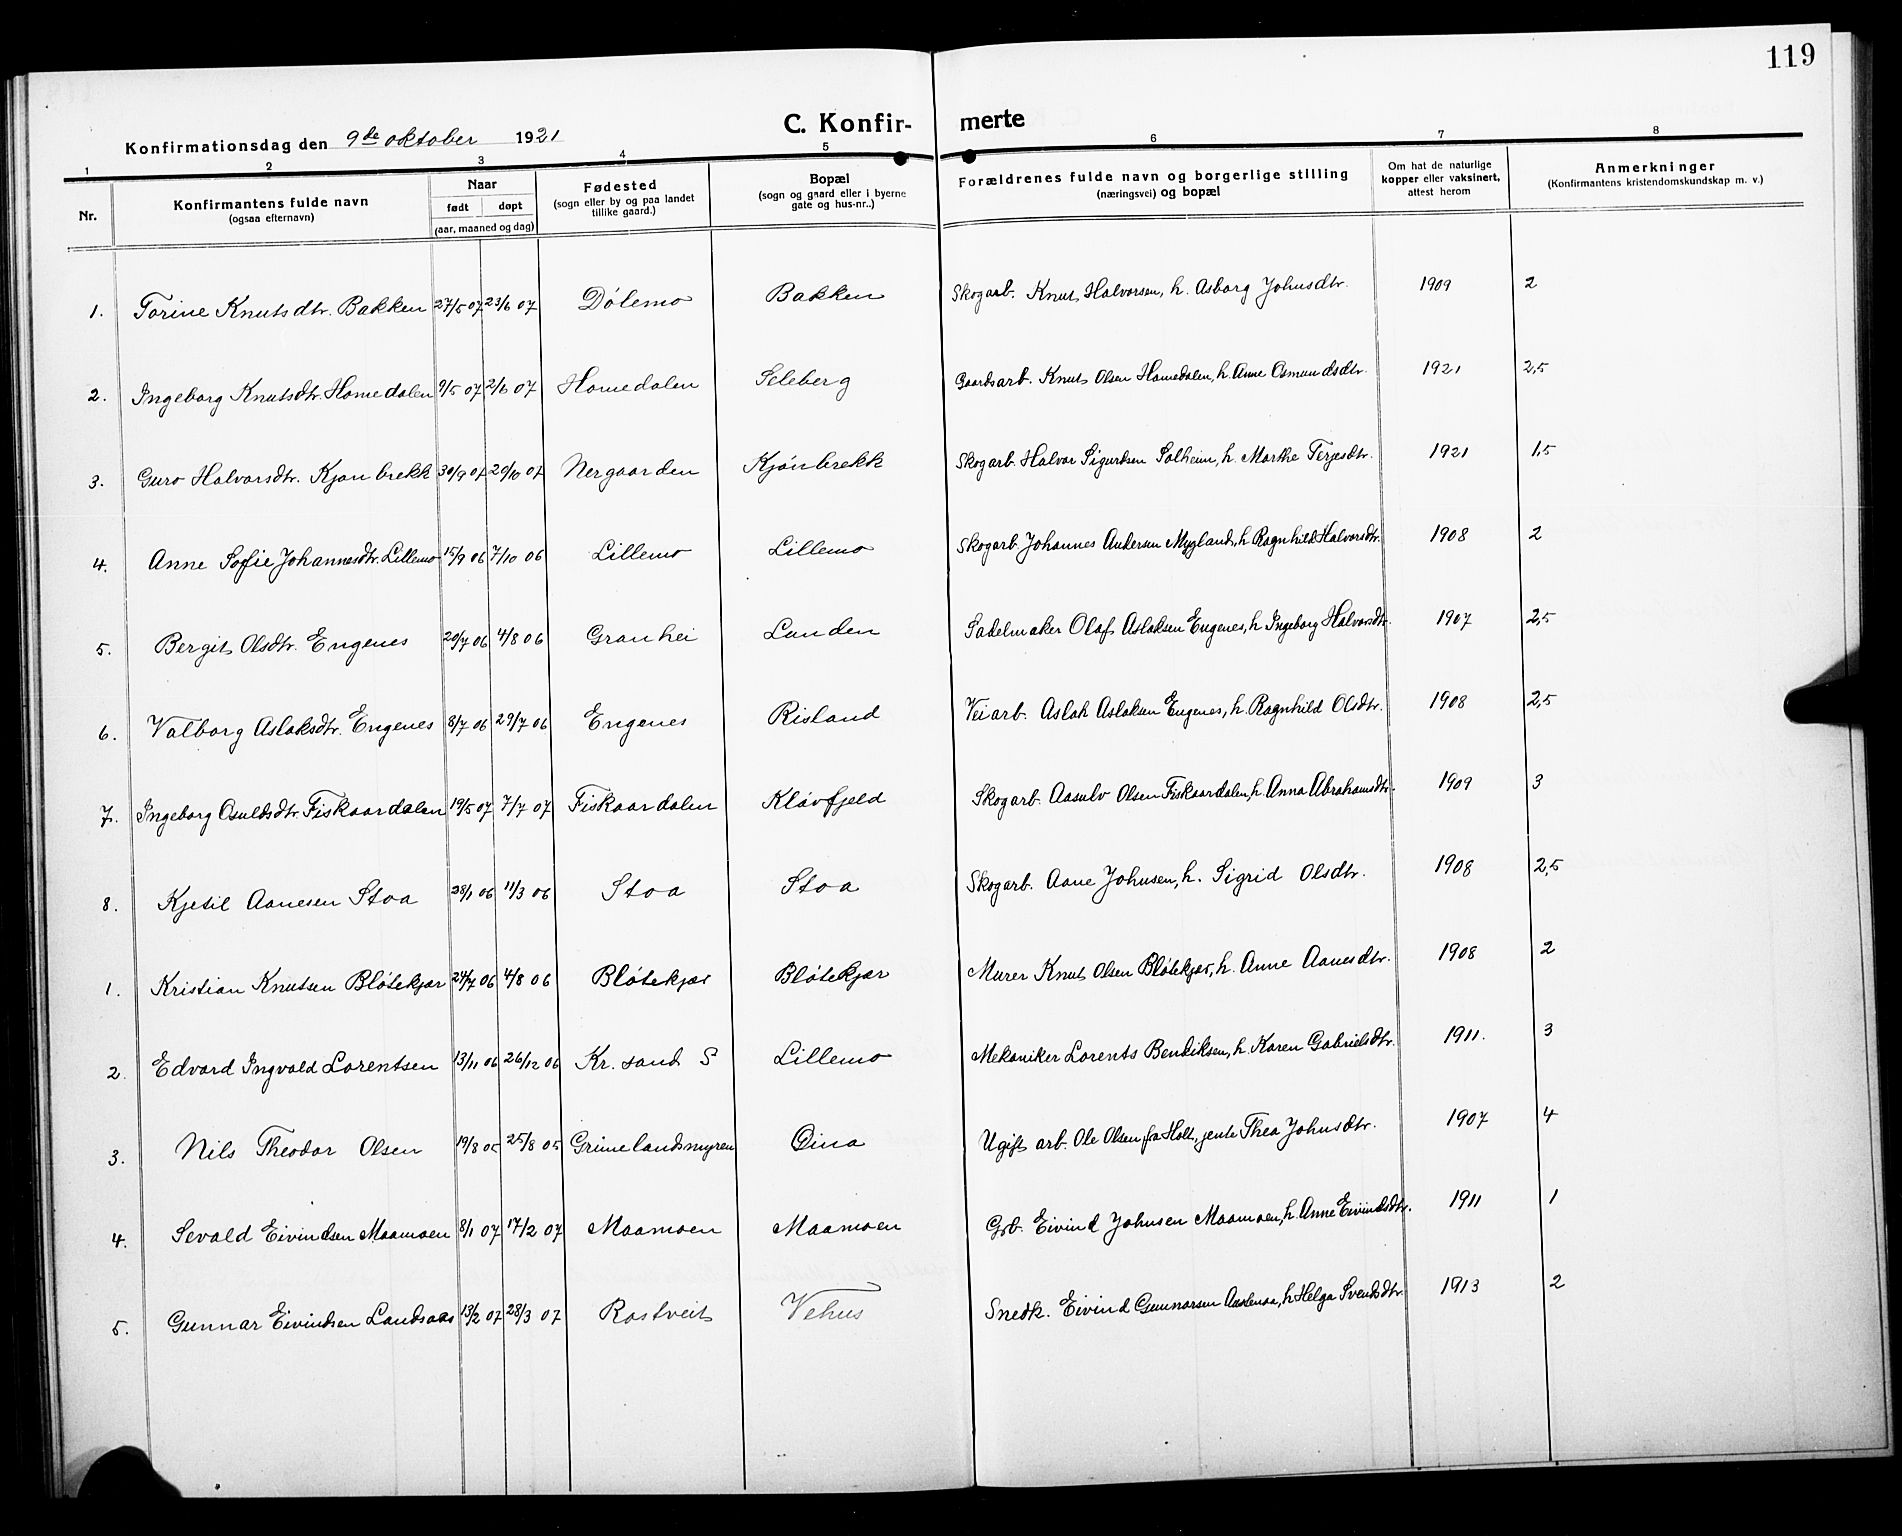 119
C. Konfir- merte
Konfirmationsdag den 9de oktober 1921
1 2 3 4 5 6 7 8
Nr.
Konfirmantens fulde navn
(ogsaa efternavn)
Naar
født døpt
(aar, maaned og dag)
Fødested
(sogn eller by og paa landet
tillike gaard.)
Bopæl
(sogn og gaard eller i byerne
gate og hus-nr..)
Forældrenes fulde navn og borgerlige stilling
(næringsvei) og bopæl
Om hat de naturlige
kopper eller vaksinert,
attest herom
Anmerkninger
(Konfirmantens kristendomskundskap m. v.)
1. Torine Knutsdtr. Bakken 27/5 07 23/6 07 Dölemo Bakken Skogarb. Knut Halvorsen, h. Asborg Johnsdtr. 1909 2
2. Ingeborg Knutsdtr. Homedalen 9/5 07 2/6 07 Homedalen Seleberg Gaardsarb. Knut Olsen Homedalen, h. Anne Osmundsdtr. 1921 2,5
3. Guro Halvorsdtr. Kjønbrekk 30/9 07 20/10 07 Nergaarden Kjönbrekk Skogarb. Halvor Sigurdsen Solheim, h. Marthe Terjesdtr. 1921 1,5
4. Anne Sofie Johannesdtr. Lillemo 15/9 06 7/10 06 Lillemo Lillemo Skogarb. Johannes Andersen Mygland, h. Ragnhild Halvorsdtr. 1908 2
5. Bergit Olsdtr. Engenes 20/7 06 4/8 06 Granhei Lunden Sadelmaker Olaf Aslaksen Engenes, h Ingeborg Halvorsdtr 1907 2,5
6. Valborg Aslaksdtr. Engenes 8/7 06 29/7 06 Engenes Risland Veiarb. Aslak Aslaksen Engenes, h. Ragnhild Olsdtr. 1908 2,5
7. Ingeborg Osuldsdtr. Fiskaardalen 19/5 07 7/7 07 Fiskaardalen Klövfjeld Skogarb. Aasulv Olsen Fiskaardalen, h. Anna Abrahamsdtr. 1909 3
8. Kjetil Aanesen Stoa 28/1 06 11/3 06 Stoa Stoa Skogarb. Aane Johnsen, h. Sigrid Olsdtr. 1908 2,5
1. Kristian Knutsen Blötekjær 24/7 06 4/8 06 Blötekjær Blötekjær Murer Knut Olsen Blötekjær, h. Anne Aanesdtr. 1908 2
2. Edvard Ingvald Lorentsen 13/11 06 26/12 06 Kr. sand S Lillemo Mekaniker Lorents Bendiksen, h. Karen Gabrielsdtr. 1911. 3
3. Nils Theodor Olsen 19/8 05 25/8 05 Grimelandsmyren Oina Ugift arb. Ole Olsen fra Holt, jente Thea Johnsdtr. 1907 4
4. Sevald Eivindsen Maamoen 8/1 07 17/2 07 Maamoen Maamoen Grb. Eivind Johnsen Maamoen, h. Anne Eivindsdtr. 1911 1
5. Gunnar Eivindsen Landsaas 13/2 07 28/3 07 Rostveit Vehus Snedk. Eivind Gunnarsen h Helga Svendsdtr. 1913 2